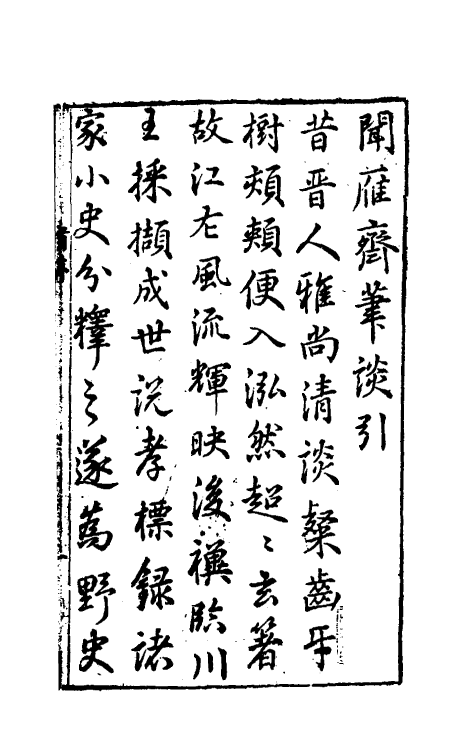 聞雁齋筆談引
昔晋人雅尚清談粲齒牙
樹頰頰便入泓然超〻玄箸
故江左風流輝映後禩臨川
王採擷成世説孝標録諸
家小史分釋之遂為野史